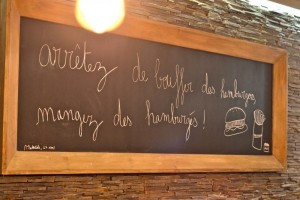 arrêtez de bouffer des hamburgers,
mangez des hamburgés !